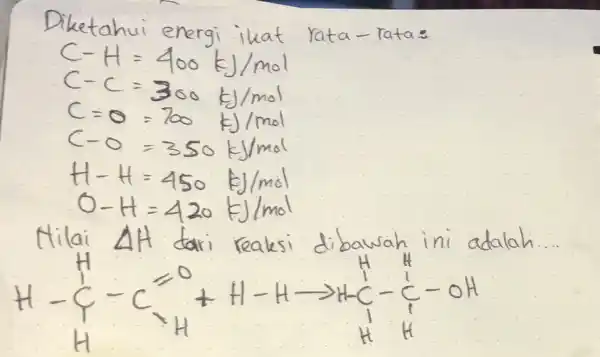 Diketahui energi ikat rata-rata:
C-H = 400 kJ/mol
C-C = 300 kJ/mol
C=O = 700 kJ/mol
C-O = 350 kJ/mol
H-H = 450 kJ/mol
O-H = 420 kJ/mol
Nilai ΔH dari reaksi dibawah ini adalah....
H H H
H - C - C =O + H-H → H-C - C - OH
H H H H